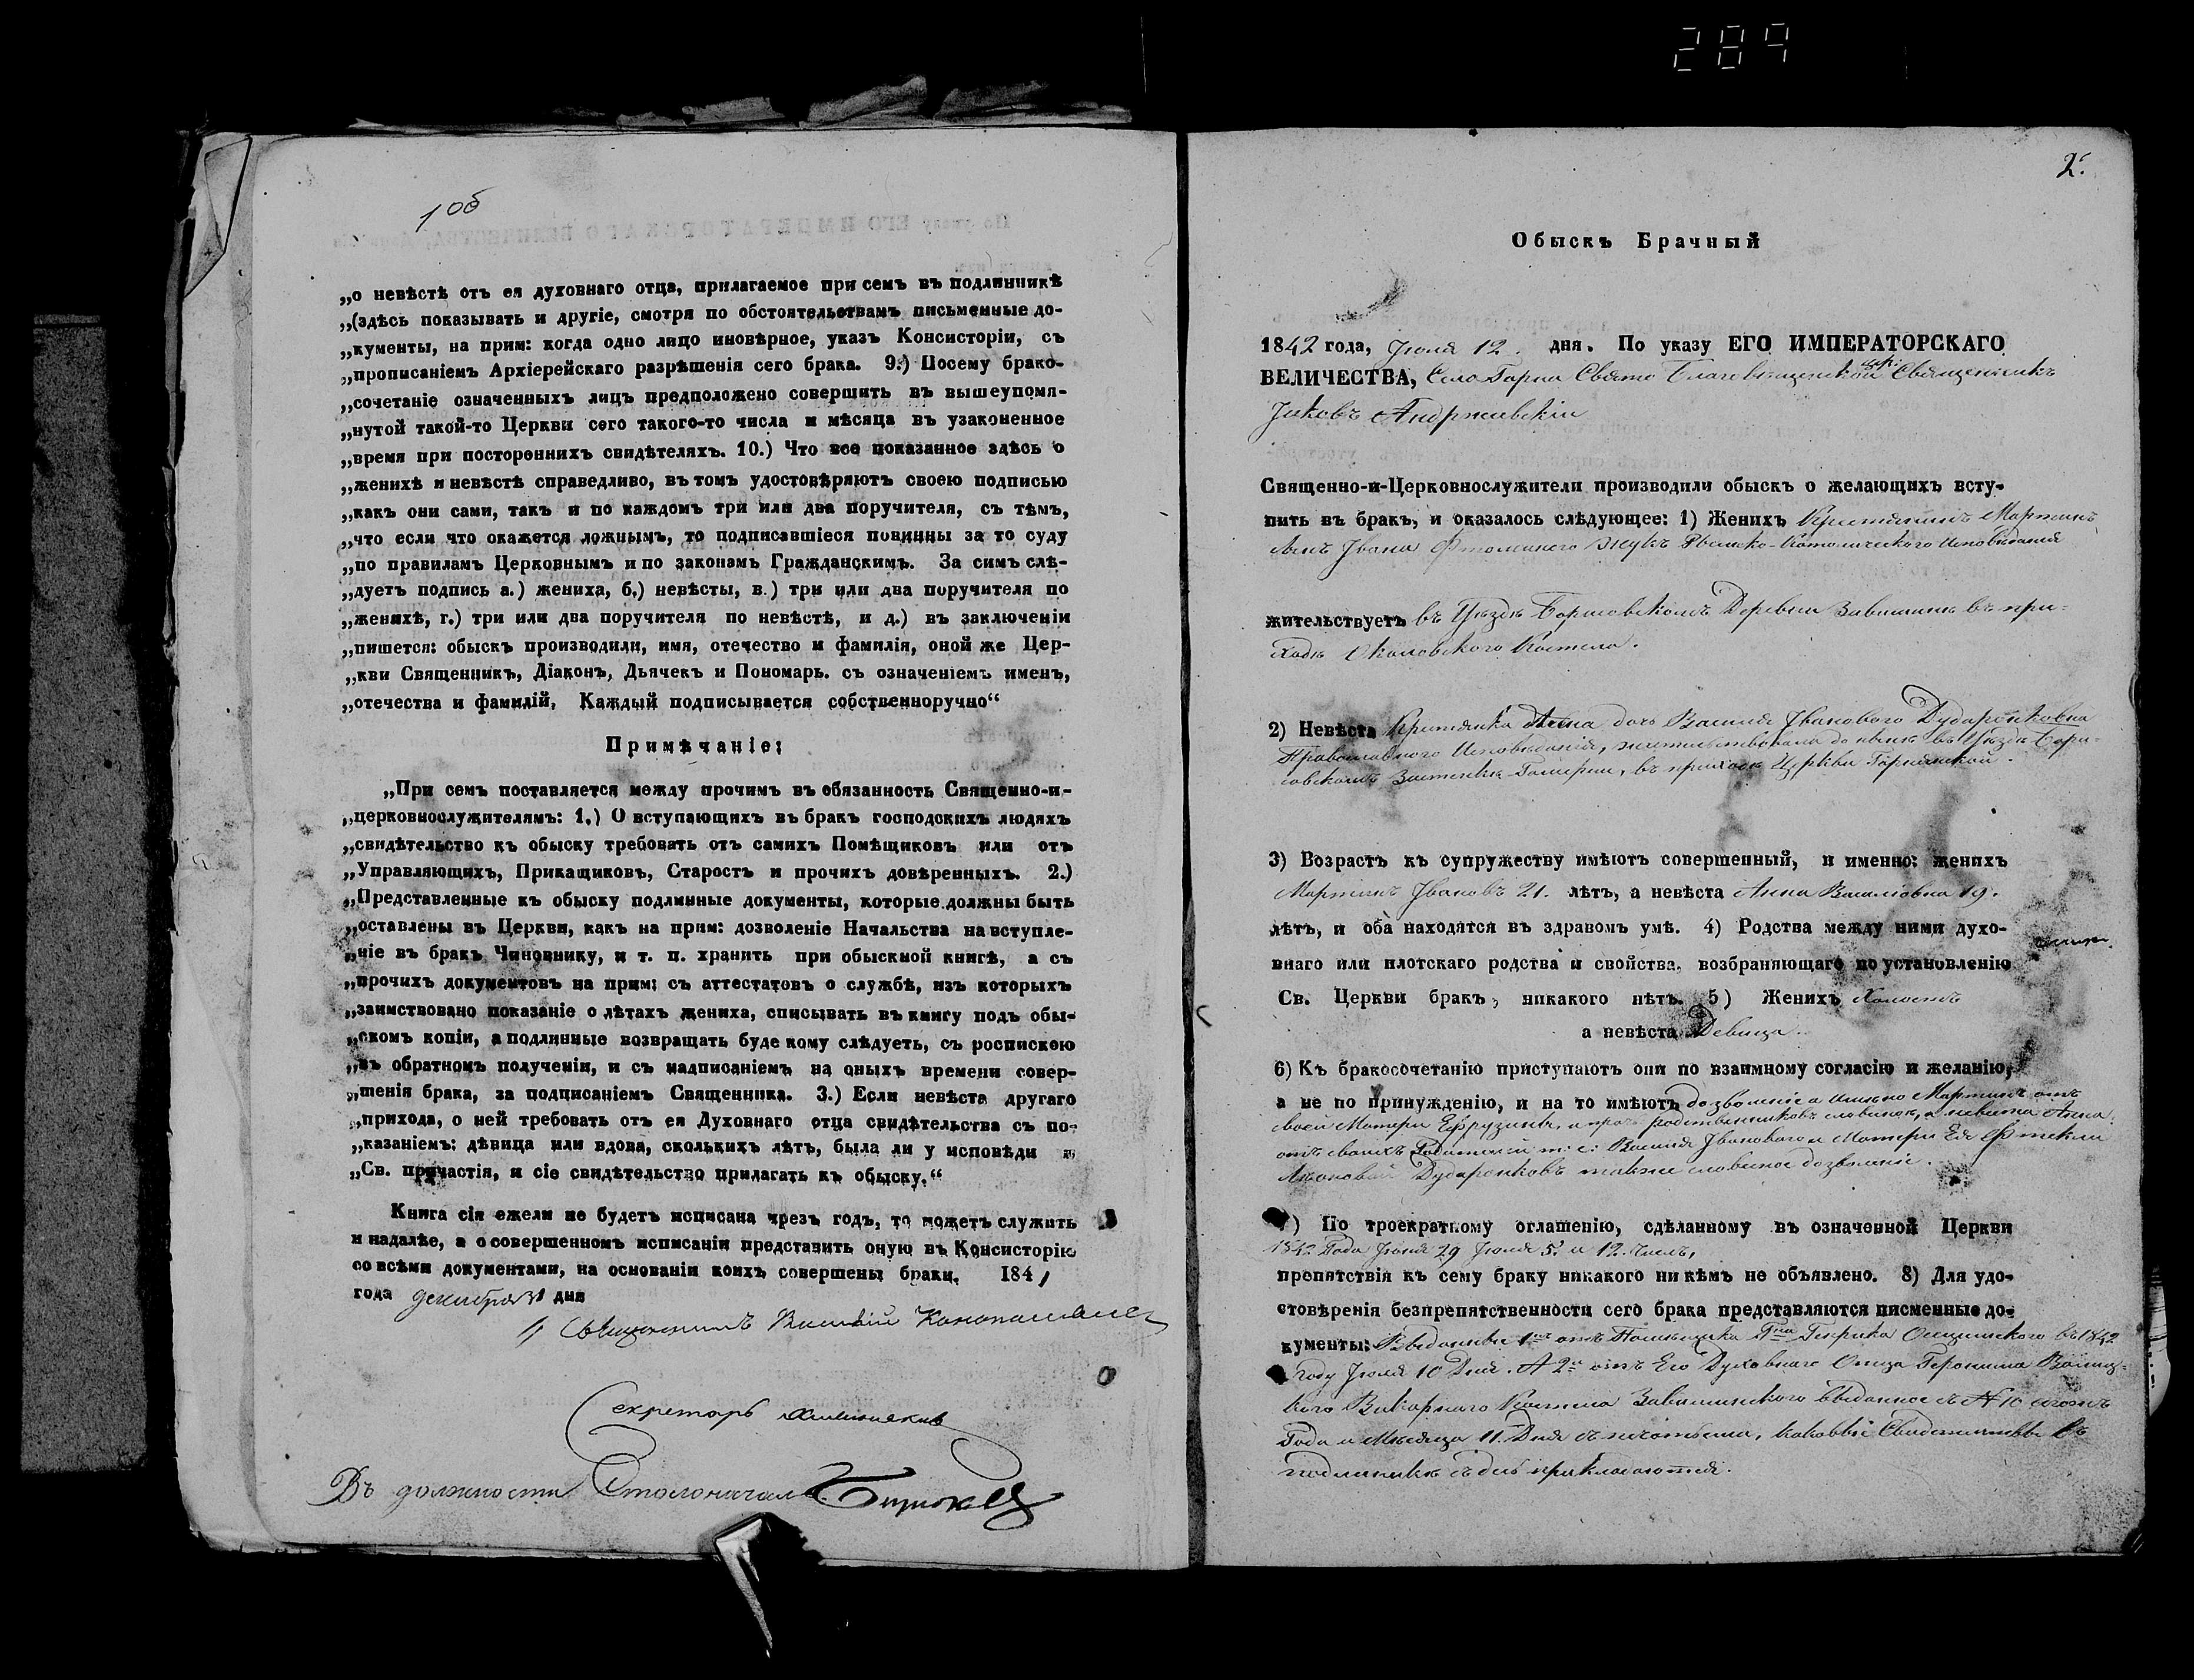 289
1 об
„о невѣстѣ отъ ея духовнаго отца, прилагаемое при семъ въ подлинникѣ
„(здѣсь показывать и другіе, смотря по обстоятельствамъ письменные до-
„кументы, на прим: когда одно лицо иновѣрное, указъ Консисторіи, съ
„прописаніемъ Архіерейскаго разрѣшенія сего брака. 9.) Посему брако-
„сочетаніе означенныхъ лицъ предположено совершить въ вышеупомя-
„нутой такой-то Церкви сего такого-то числа и мѣсяца въ узаконенное
„время при постороннихъ свидѣтеляхъ. 10.) Что все показанное здѣсь о
„женихѣ и невѣстѣ справедливо, въ томъ удостовѣряютъ своею подписью
„какъ они сами, такъ и по каждомъ три или два поручителя, съ тѣмъ,
„что если что окажется ложнымъ, то подписавшіеся повинны за то суду
„по правиламъ Церковнымъ и по законамъ Гражданскимъ. За симъ слѣ-
„дуетъ подпись а.) жениха, б.) невѣсты, в.) три или два поручителя по
„женихѣ, г.) три или два поручителя по невѣстѣ, и д.) въ заключеніи
„пишется: обыскъ производили, имя, отечество и фамилія, оной же Цер-
„кви Священникъ, Діаконъ, Дьячекъ и Пономарь. съ означеніемъ именъ,
„отечества и фамилій, Каждый подписывается собственноручно“
Примѣчаніе:
„При семъ поставляется между прочимъ въ обязанность Священно-и-
„церковнослужителямъ: 1.) О вступающихъ въ бракъ господскихъ людяхъ
„свидѣтельство къ обыску требовать отъ самихъ Помѣщиковъ или отъ
„Управляющихъ, Прикащиковъ, Старостъ и прочихъ довѣренныхъ. 2.)
„Представленные къ обыску подлинные документы, которые должны быть
„оставлены въ Церкви, какъ на прим: дозволеніе Начальства на вступле-
„ніе въ бракъ Чиновнику, и т. п. хранить при обыскной книгѣ, а съ
„прочихъ документовъ на прим: съ аттестатовъ о службѣ, изъ которыхъ
„заимствовано показаніе о лѣтахъ жениха, списывать въ книгу подъ обы-
„скомъ копіи, а подлинные возвращать буде кому слѣдуетъ, съ роспискою
„въ обратномъ полученіи, и съ надписаніемъ на оныхъ времени совер-
„шенія брака, за подписаніемъ Священника. 3.) Если невѣста другаго
„прихода, о ней требовать отъ ея Духовнаго отца свидѣтельства съ по-
„казаніемъ: дѣвица или вдова, сколькихъ лѣтъ, была ли у исповѣди и
„Св. причастія, и сіе свидѣтельство прилагать къ обыску.“
Книга сія ежели не будетъ исписана чрезъ годъ, то можетъ служить
и надалѣе, а о совершенномъ исписаніи представить оную въ Консисторію
со всѣми документами, на основаніи коихъ совершены браки. 1841
года декабря 31 дня
Священникъ Василій
Секретарь
Въ должности Столоначал.
2.
Обыскъ Брачный
1842 года, Іюля 12. дня. По указу ЕГО ИМПЕРАТОРСКАГО
ВЕЛИЧЕСТВА, Село Горна Свято Благовѣщенской церк: Священникъ
Іаковъ Андржеевскій
Священно-и-Церковнослужители производили обыскъ о желающихъ всту-
пить въ бракъ, и оказалось слѣдующее: 1) Женихъ Крестянинъ Мартинъ
сынъ Ивана Римско-Католическаго исповѣданія
жительствуетъ въ Уѣздѣ Борисовскомъ Деревни Завишинѣ въ при-
ходѣ Костела.
2) Невѣста Крестянка Анна дочь Василія Ивановаго Дударонковна
Православнаго Исповѣданія, жительствовала до нынѣ въ Уѣздѣ Бори-
совскомъ Застенкѣ въ приходѣ Церкви Горнянской.
3) Возрастъ къ супружеству имѣютъ совершенный, и именно: женихъ
Мартинъ Ивановъ 21. лѣтъ, а невѣста Анна Василіовна 19.
лѣтъ, и оба находятся въ здравомъ умѣ. 4) Родства между ними духо-
внаго или плотскаго родства и свойства, возбраняющаго по установленію
Св. Церкви бракъ, никакого нѣтъ. 5) Женихъ Холостъ
а невѣста Девица.
6) Къ бракосочетанію приступаютъ они по взаимному согласію и желанію,
а не по принужденію, и на то имѣютъ дозволеніе а именно Мартинъ отъ
своей Матери Ефрузины, и проч. родственниковъ словесное, а невѣста Анна
отъ своихъ Родителей т: е: Василія Ивановаго и Матери Ея Феткли
Дударонковъ также словесное дозволеніе.
7) По троекратному оглашенію, сдѣланному въ означенной Церкви
1842 Года Іюня 29 Іюля 5. и 12. числъ,
препятствія къ сему браку никакого ни кѣмъ не объявлено. 8) Для удо-
стовѣренія безпрепятственности сего брака представляются писменные до-
кументы: 1е отъ Помѣщика Генрика въ 1842
году Іюля 10 Дня. А 2е отъ Его Духовнаго Отца Геронима
Викарнаго Костела Завишинскаго выданное съ № 10 сегожъ
Года и Мѣсяца 11. Дня съ печатьми, каковые Свидетельствы въ
подлинникѣ съ дѣсь прикладаются.